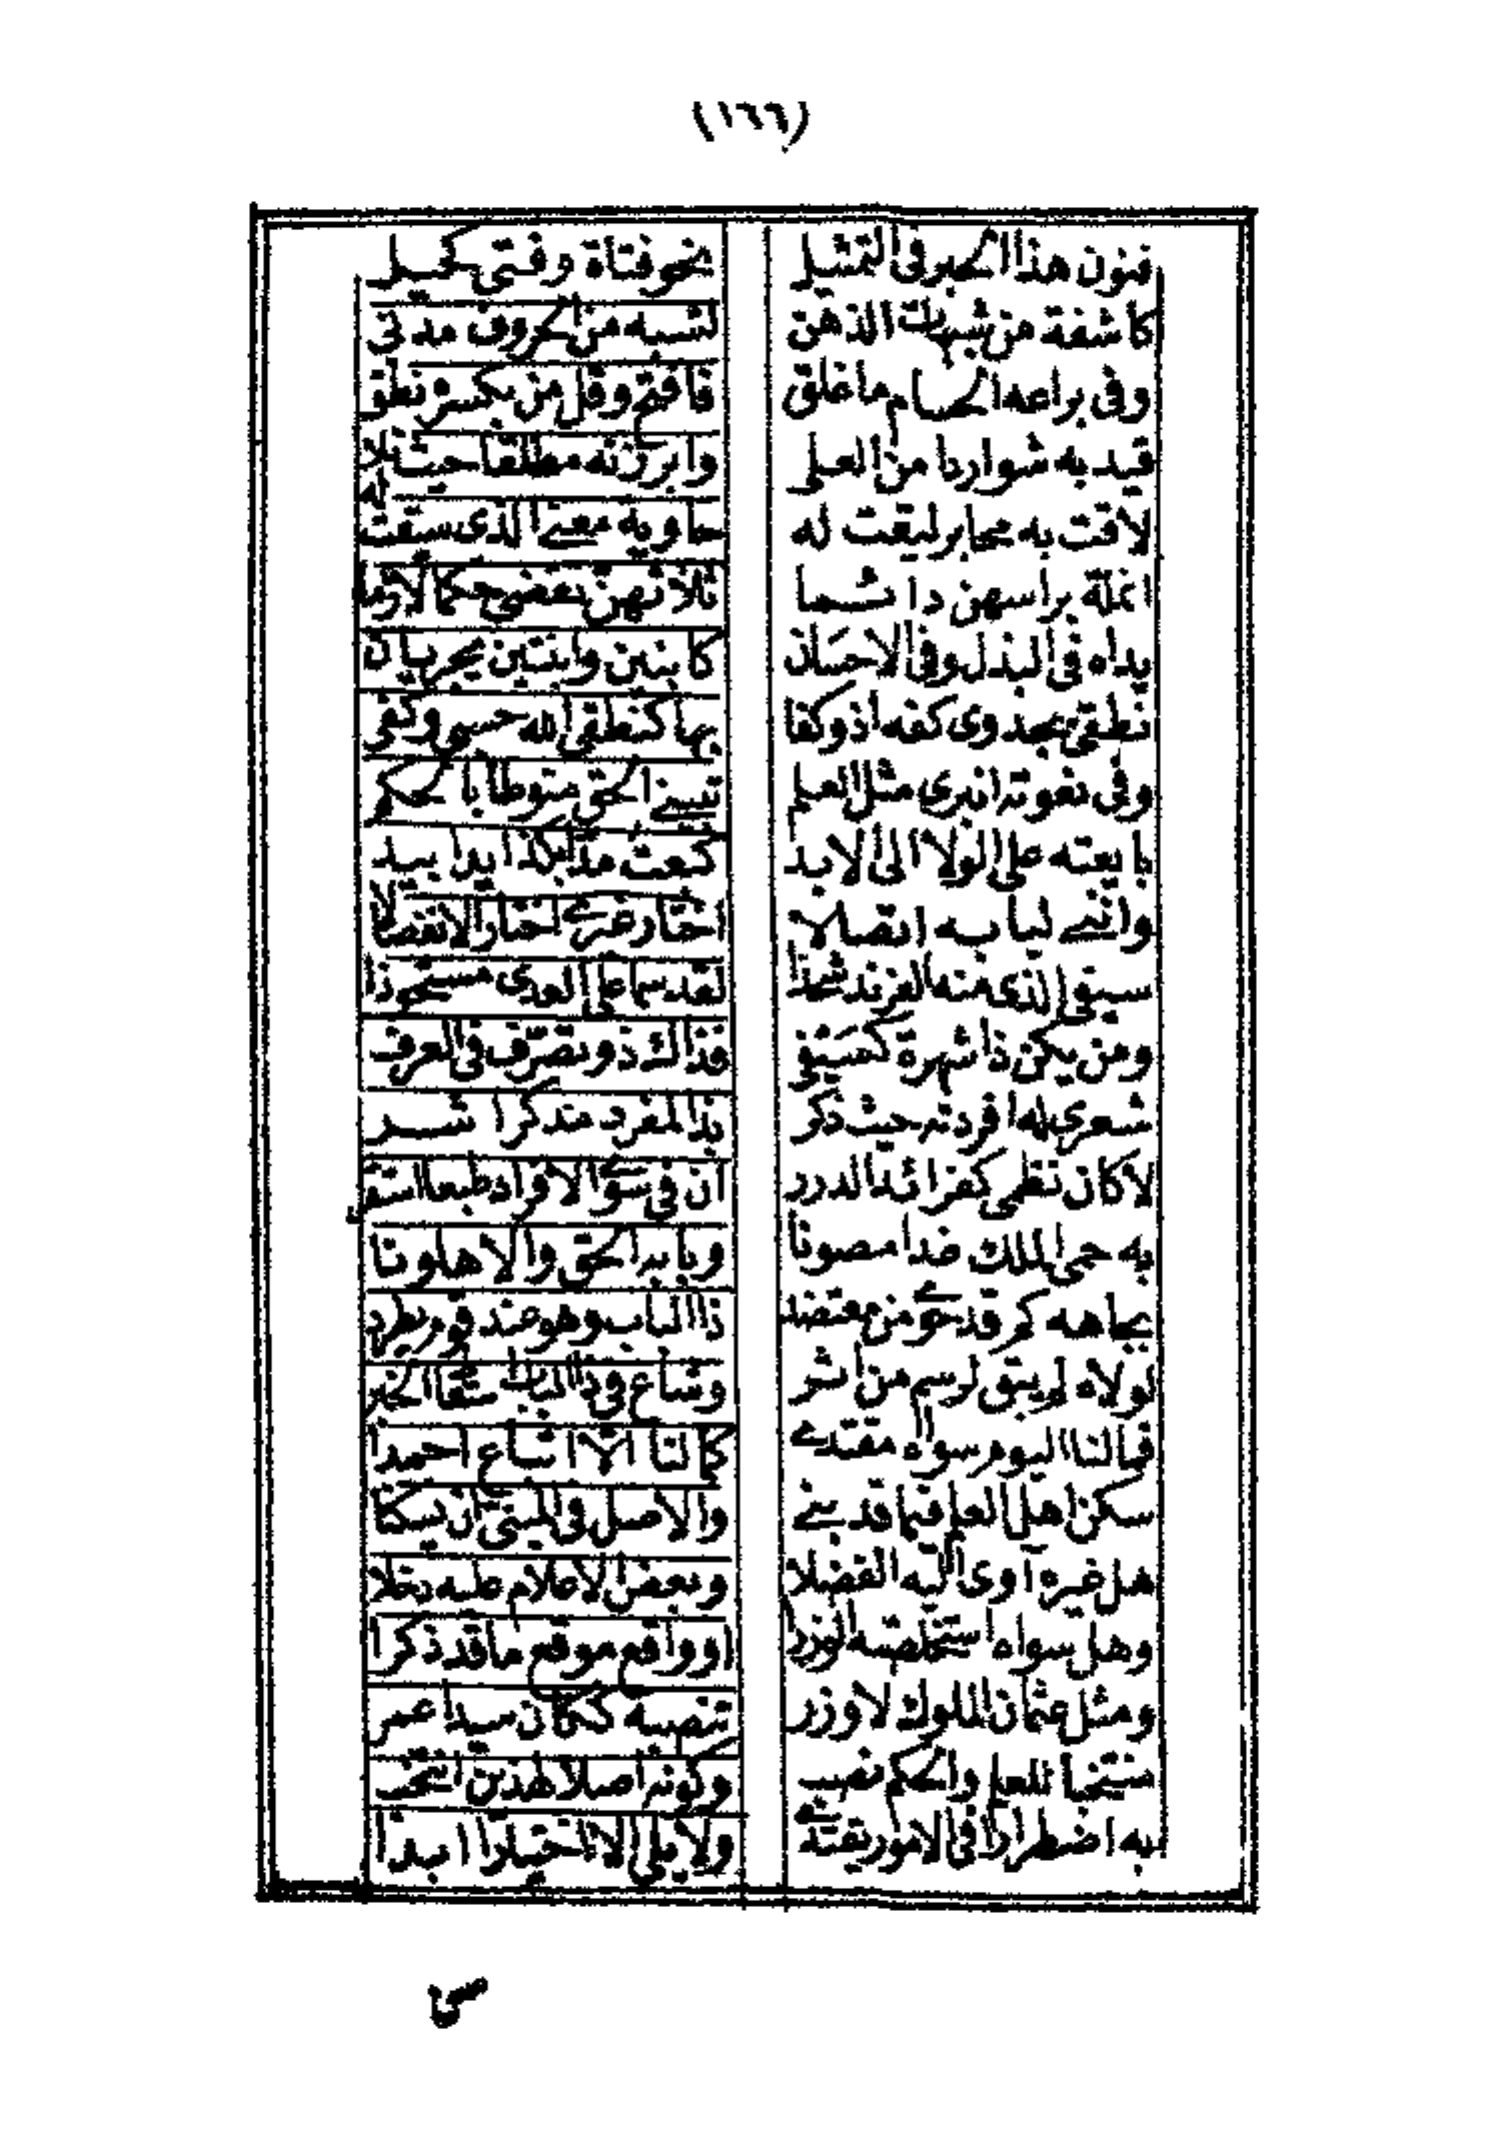 (١٦٦)
فنون هذا الحبر فى التمثيل نحو فتاة وفتى كحيل
كاشفة من شبهات الذهن لشبه من الحروف مدنى
وفى براعه الحسام ما غلق فافتح وقل من بكسره نطق
قيد به شواردا من العلى وابرزنه مطلقا حيث تلا
لاقت به محابر ليقت له حاويه معنى الذى سبقت له
انملة براسهن دائما ثلاثهن تقضى حكما لازما
يداه فى البذل وفى الاحسان كابنين وابنتين يجريان
نطقى بجدوى كفه اذ وكفا بها كنطقى الله حسبى وكفى
وفى نعوته انبرى مثل العلم تبينى الحق منوطا بالحكم
بايعته على الولا الى الابد كبعت مدا بكذا يدا بيد
واننى لبابه اتصالا اختار غيرى اختار الانفصالا
سيفى الذى منه الفرند شحذا لقد سما على العدى مستحوذا
ومن يكن ذا شهرة كسيفى فذاك ذو تصرف فى العرف
شعرى له افردته حيث ذكر بذا لمفرد مذكر اشر
لا كان نظمى كفرائد الدرر ان فى سوى الافراد طبعا استقر
به حمى الملك غدا مصونا وبابه الحق والاهلونا
بجاهه كم قد حمى من مقتضد ذا الباب وهو عند قوم يطرد
لولاه لم يبق لرسم من اثر وشاع فى ذا الباب سقا الخبر
فما لنا اليوم سواه مقتدى كما لنا الا اتباع احمدا
سكن اهل العلم فيما قد بنى والاصل فى المبنى ان يسكنا
هل غيره آوى اليه الفضلا وبعض الاعلام عليه دخلا
وهل سواه استخلصته الوزرا او واقع موقع ما قد ذكرا
ومثل عثمان الملوك لا وزر تنصبه ككان سيدا عمر
منتخبا للعلم والحكم نصب وكونه اصلا لهذين انتخب
به اضطرارا فى الامور يقتدى ولا يلى الا اختيارا ابدا